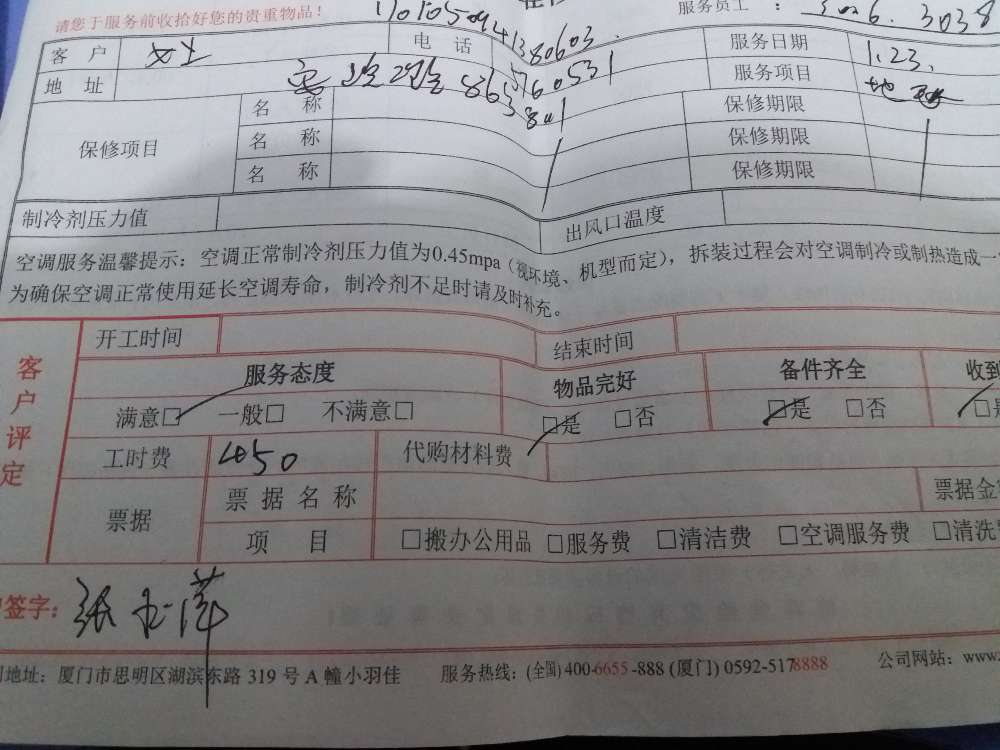 请您于服务前收拾好您的贵重物品！ 服务员工：3026. 3038
客户 女士 电话 服务日期 1.23.
地址 服务项目
保修项目 名称 保修期限
名称 保修期限
名称 保修期限
制冷剂压力值 出风口温度
空调服务温馨提示：空调正常制冷剂压力值为0.45mpa（视环境、机型而定），拆装过程会对空调制冷或制热造成一
为确保空调正常使用延长空调寿命，制冷剂不足时请及时补充。
客户评定
开工时间 结束时间
服务态度 物品完好 备件齐全 收到
满意□ 一般□ 不满意□ □是 □否 □是 □否 □是
工时费 450 代购材料费
票据 票据名称 票据金
项目 □搬办公用品 □服务费 □清洁费 □空调服务费 □清洗
签字：张玉萍
地址：厦门市思明区湖滨东路 319 号 A 幢小羽佳 服务热线：(全国) 400-6655-888 (厦门) 0592-5178888 公司网站：www.